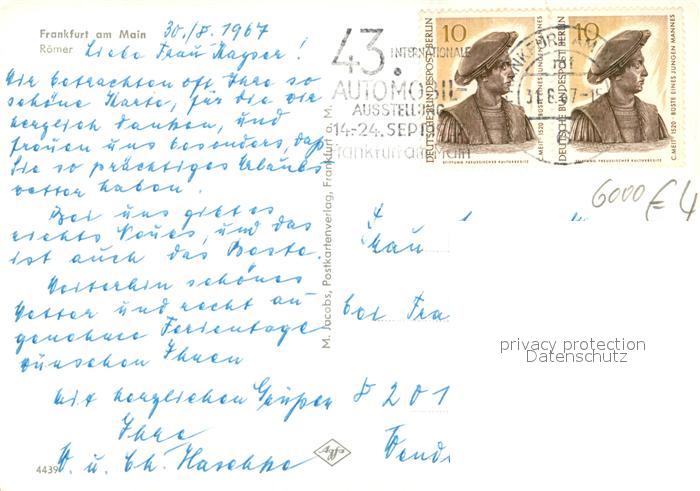 Frankfurt am Main
Römer
30./8. 1967
Liebe Frau Kayser!
Wir betrachten oft Ihre so
schöne Karte, für die wir
herzlich danken, und
freuen uns besonders, daß
Sie so prächtiges Urlaubs
wetter haben.
Bei uns gibt es
nichts Neues, und das
ist auch das Beste.
Weiterhin schönes
Wetter und recht an-
genehme Ferientage
wünschen Ihnen
mit herzlichen Grüßen
Ihre
W. u. Ch. Haschke
4439
M. Jacobs, Postkartenverlag, Frankfurt a. M.
Agfa
43.
INTERNATIONALE
AUTOMOBIL-
AUSSTELLUNG
14.-24. SEP 19
Frankfurt am Main
10
DEUTSCHE BUNDESPOST BERLIN
C. MEIT 1520 · BÜSTE EINES JUNGEN MANNES
STIFTUNG PREUSSISCHER KULTURBESITZ
10
DEUTSCHE BUNDESPOST BERLIN
C. MEIT 1520 · BÜSTE EINES JUNGEN MANNES
STIFTUNG PREUSSISCHER KULTURBESITZ
6000 € 4
Frau
bei Fra
8 201
privacy protection
Datenschutz